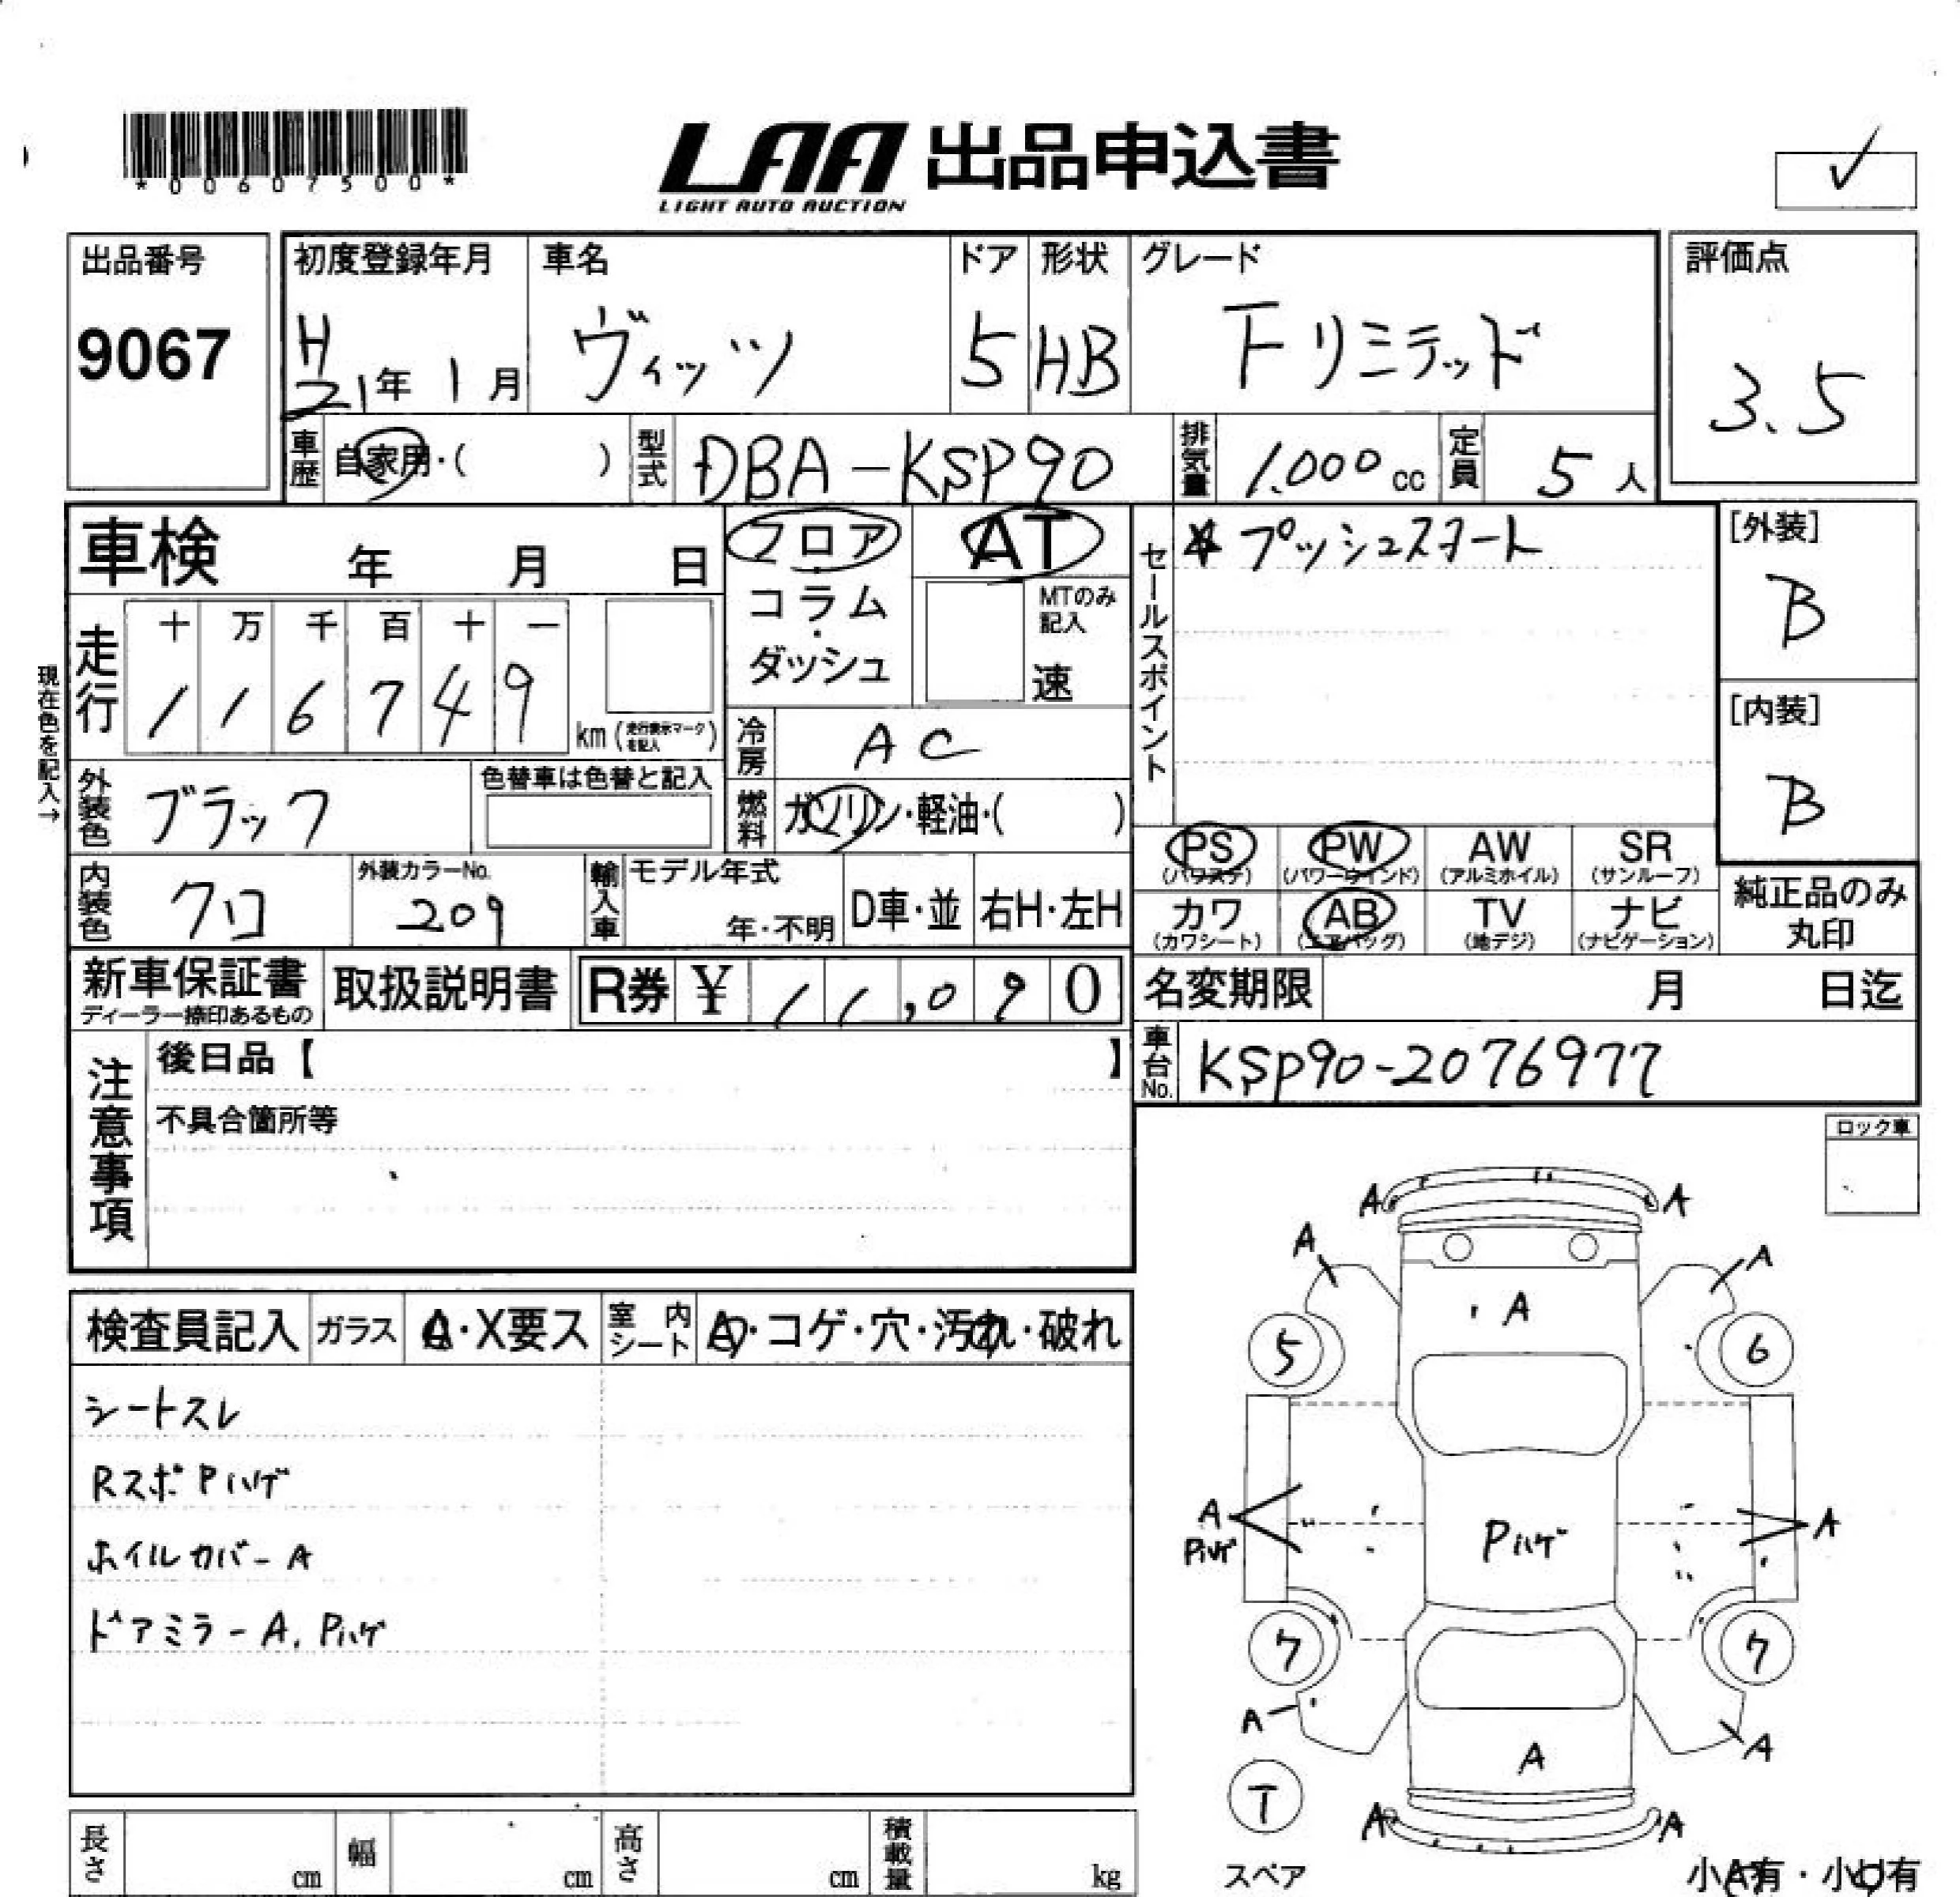 *00607500*
LAA 出品申込書
LIGHT AUTO AUCTION
✓
出品番号
9067
初度登録年月
H21年1月
車名
ヴィッツ
ドア
5
形状
HB
グレード
Fリミテッド
評価点
3.5
車歴
自家用・( )
型式
DBA-KSP90
排気量
1.000cc
定員
5人
車検 年 月 日
フロア・コラム・ダッシュ
AT
MTのみ記入
速
セールスポイント
☆プッシュスタート
[外装]
B
[内装]
B
現在色を記入→
走行
十 万 千 百 十 一
1 1 6 7 4 9
km(走行表示マークを記入)
冷房
AC
外装色
ブラック
色替車は色替と記入
燃料
ガソリン・軽油・( )
PS (パワステ)
PW (パワーウインド)
AW (アルミホイル)
SR (サンルーフ)
内装色
クロ
外装カラーNo.
209
輸入車
モデル年式
年・不明
D車・並
右H・左H
カワ (カワシート)
AB (エアバッグ)
TV (地デジ)
ナビ (ナビゲーション)
純正品のみ
丸印
新車保証書
ディーラー捺印あるもの
取扱説明書
R券 ¥ 11,090
名変期限 月 日迄
車台No.
KSP90-2076977
注意事項
後日品【 】
不具合箇所等
ロック車
検査員記入
ガラス
・X要ス
室内シート
・コゲ・穴・汚れ・破れ
シートスレ
Rスポ Pハゲ
ホイルカバーA
ドアミラーA. Pハゲ
A
A
A
A
A
5
6
A
Pハゲ
Pハゲ
A
7
7
A
A
A
T
スペア
A
A
小A有・小U有
長さ cm
幅 cm
高さ cm
積載量 kg